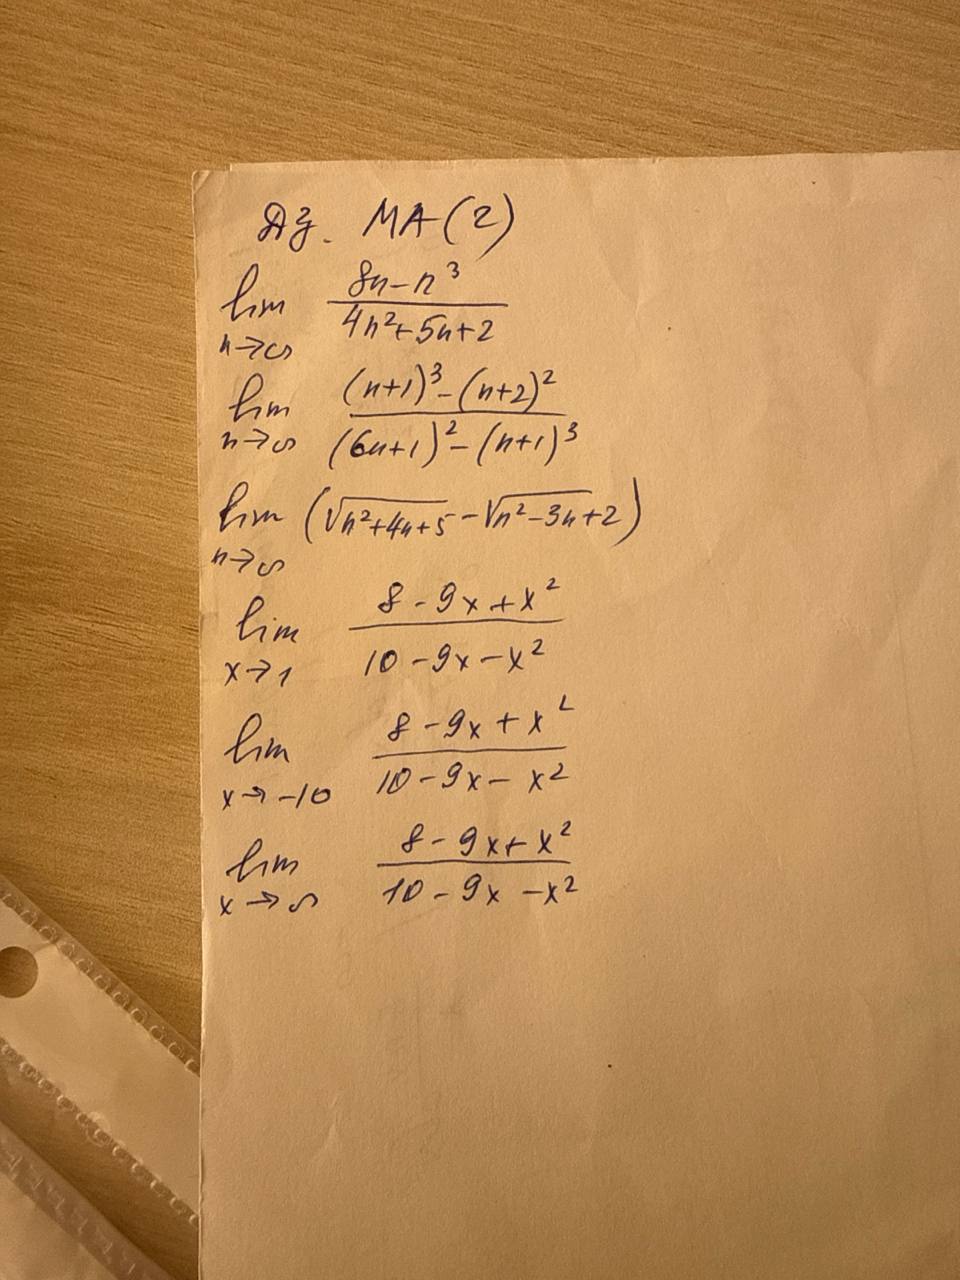 ДЗ. МА(2)
lim n→∞ (8n-n³)/(4n²+5n+2)
lim n→∞ ((n+1)³-(n+2)²)/((6n+1)²-(n+1)³)
lim n→∞ (√(n²+4n+5)-√(n²-3n+2))
lim x→1 (8-9x+x²)/(10-9x-x²)
lim x→-10 (8-9x+x²)/(10-9x-x²)
lim x→∞ (8-9x+x²)/(10-9x-x²)